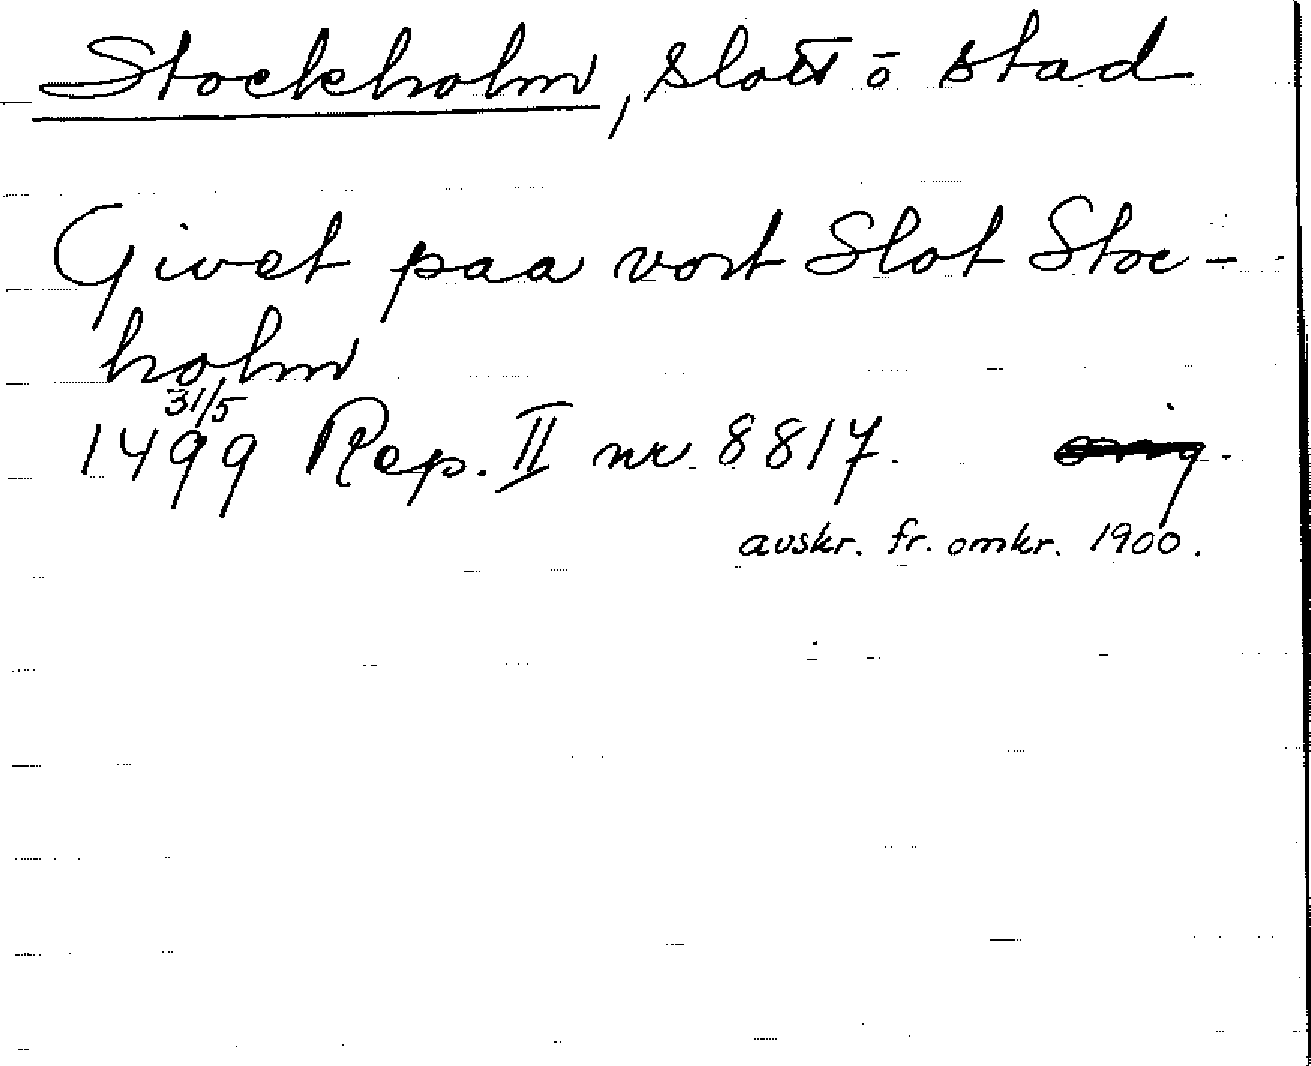 Stockholm, slott o stad
Givet paa vort Slot Stoc-
holm
31/5
1499 Rep. II nr. 8817. orig.
avskr. fr. omkr. 1900.